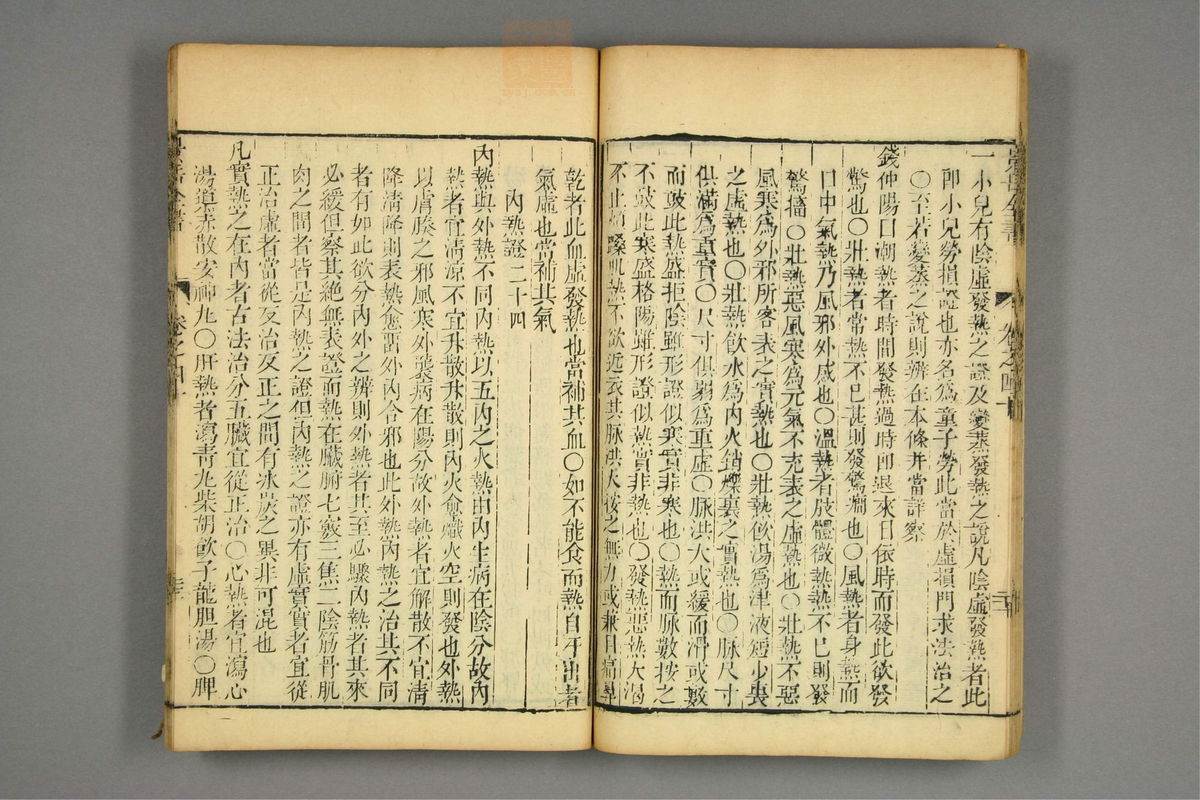 一小兒有陰虛發熱之證及變蒸發熱之說凡陰虛發熱者此
卽小兒勞損證也亦名爲童子勞此當於虛損門求法治之
○至若變蒸之說則辨在本條并當詳察
錢仲陽曰潮熱者時間發熱過時卽退來日依時而發此欲發
驚也○壯熱者常熱不已甚則發驚癇也○風熱者身熱而
口中氣熱乃風邪外感也○溫熱者肢體微熱熱不已則發
驚搐○壯熱惡風寒爲元氣不充表之虛熱也○壯熱不惡
風寒爲外邪所客表之實熱也○壯熱飲湯爲津液短少裏
之虛熱也○壯熱飲水爲內火銷爍裏之實熱也○脉尺寸
俱滿爲重實○尺寸俱弱爲重虛○脉洪大或緩而滑或數
而鼓此熱盛拒陰雖形證似寒實非寒也○熱而脉數按之
不鼓此寒盛格陽雖形證似熱實非熱也○發熱惡熱大渴
不止煩躁肌熱不欲近衣其脉洪大按之無力或兼目痛鼻
乾者此血虛發熱也當補其血○如不能食而熱自汗出者
氣虛也當補其氣
內熱證 二十四
內熱與外熱不同內熱以五內之火熱由內生病在陰分故內
熱者宜清涼不宜升散升散則內火愈熾火空則發也外熱
以膚腠之邪風寒外襲病在陽分故外熱者宜解散不宜清
降清降則表熱愈留外內合邪也此外熱內熱之治其不同
者有如此欲分內外之辨則外熱者其至必驟內熱者其來
必緩但察其絕無表證而熱在臟腑七竅三焦二陰筋骨肌
肉之間者皆是內熱之證但內熱之證亦有虛實實者宜從
正治虛者當從反治反正之間有冰炭之異非可混也
凡實熱之在內者古法治分五臟宜從正治○心熱者宜瀉心
湯導赤散安神丸○肝熱者瀉青丸柴胡飲子龍胆湯○脾